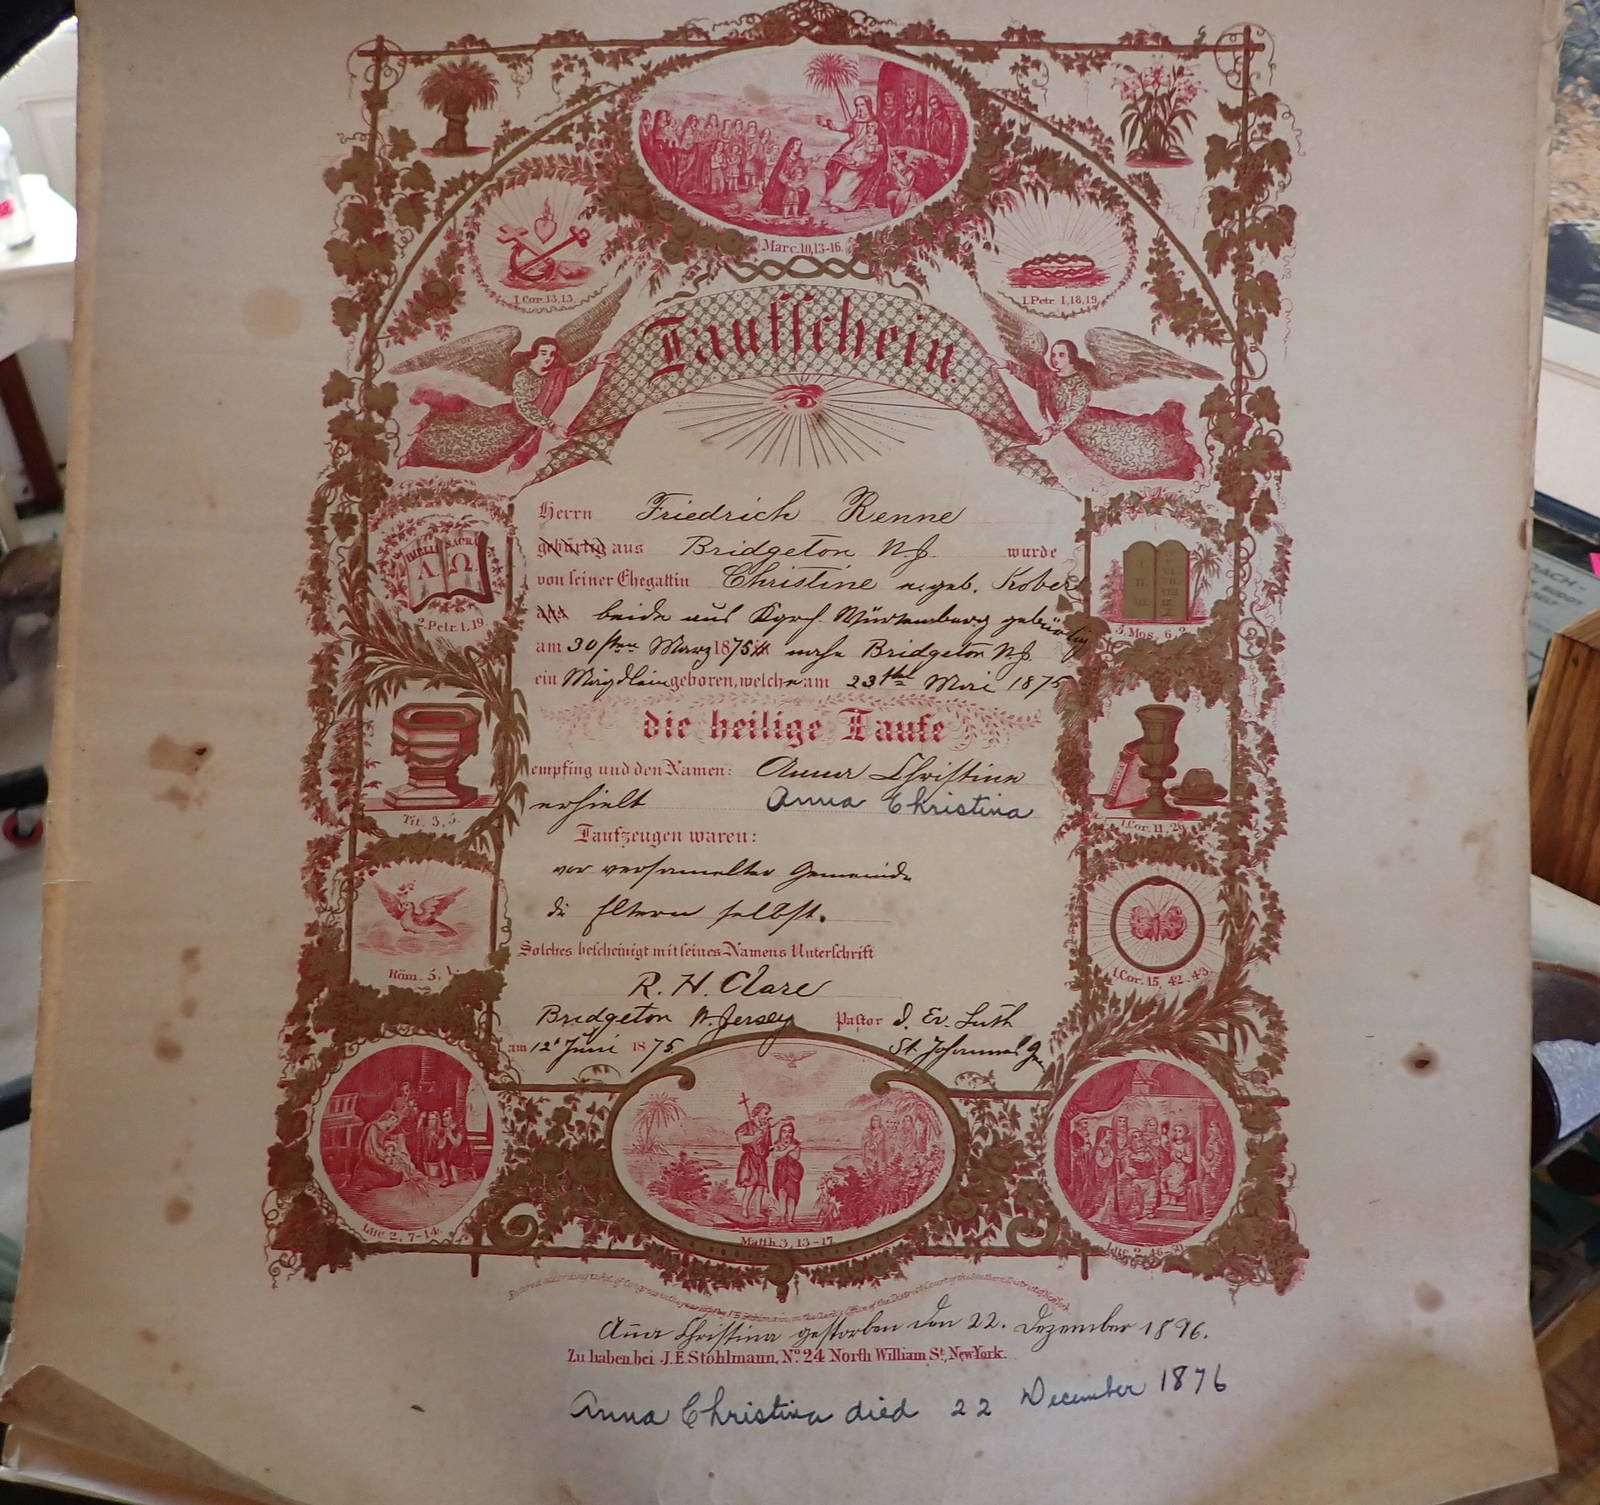 Marc. 10, 13-16.
1. Cor. 13, 13.
1. Petr. 1, 18, 19.
Taufschein.
Herrn Friedrich Renne
gebürtig aus Bridgeton N.J. wurde
von seiner Ehegattin Christine geb. Kober
beide aus Kgrch. Würtemberg gebürtig
am 30sten Marz 1875 nahe Bridgeton N.J.
ein Mägdlein geboren, welche am 23ten Mai 1875
die heilige Taufe
empfing und den Namen: Anna Christina
erhielt Anna Christina
Taufzeugen waren:
vor versamelter Gemeinde
die Eltern selbst.
Solches bescheinigt mit seines Namens Unterschrift
R. H. Clare
Bridgeton N. Jersey Pastor d. Ev. Luth
am 12t Juni 1875. St. Johannes
BIBLIA SACRA
Α Ω
2. Petr. 1, 19.
5. Mos. 6,
Tit. 3, 5.
1. Cor. 11,
Röm. 5, 1.
1. Cor. 15, 42. 43.
Luc 2, 7-14.
Matth 3, 13-17
Luc 2, 46-
Anna Christina gestorben den 22. Dezember 1896.
Zu haben bei J. E. Stohlmann, No. 24 North William St, New-York.
Anna Christina died 22 December 1876